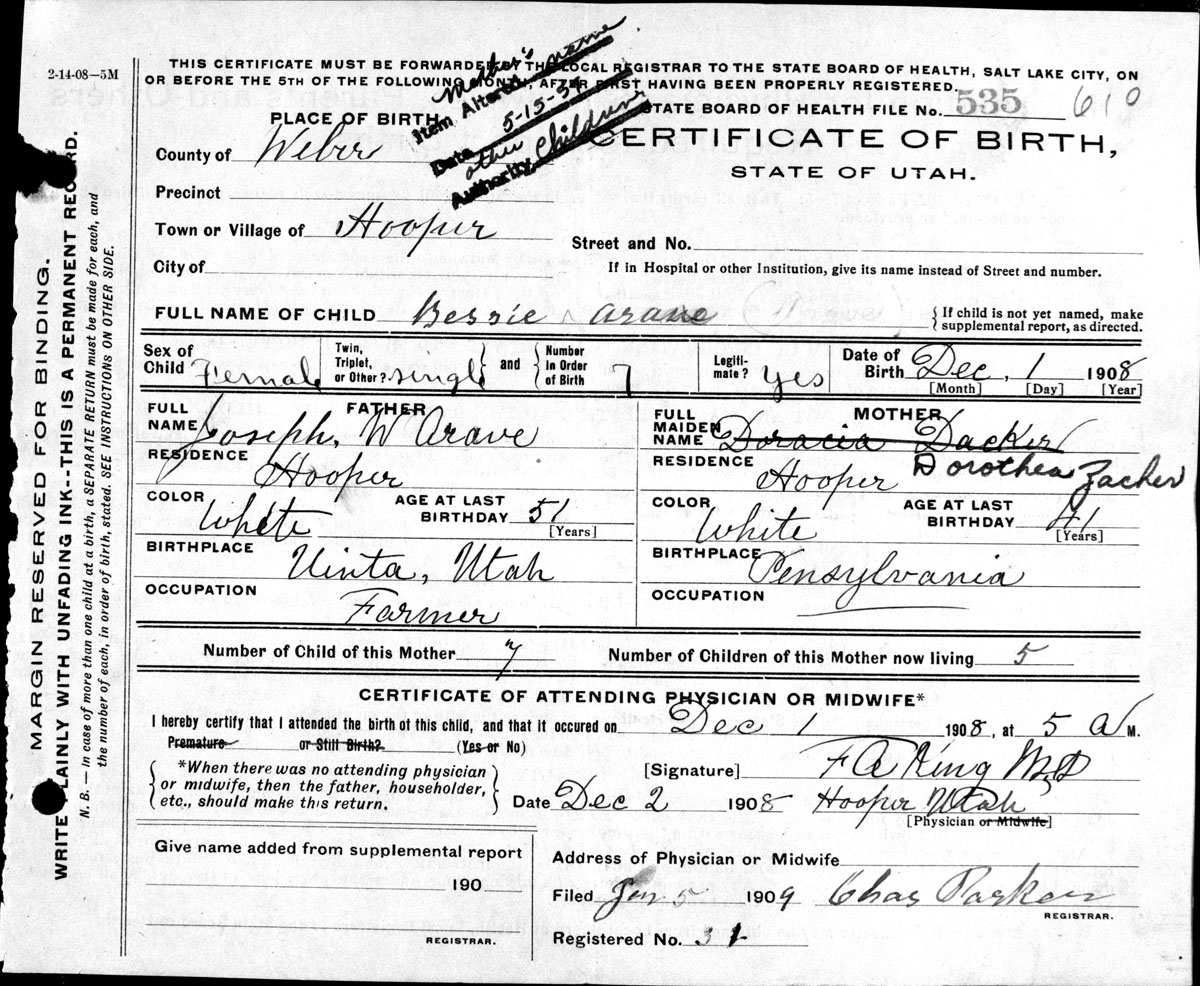 2-14-08—5M
THIS CERTIFICATE MUST BE FORWARDED BY THE LOCAL REGISTRAR TO THE STATE BOARD OF HEALTH, SALT LAKE CITY, ON
OR BEFORE THE 5TH OF THE FOLLOWING MONTH, AFTER FIRST HAVING BEEN PROPERLY REGISTERED.
STATE BOARD OF HEALTH FILE No. 535 610
Item Altered Mother's name
Date 5-15-3
Authority other Children
PLACE OF BIRTH
CERTIFICATE OF BIRTH,
STATE OF UTAH.
County of Weber
Precinct
Town or Village of Hooper
Street and No.
City of
If in Hospital or other Institution, give its name instead of Street and number.
FULL NAME OF CHILD Bessie Arave
{ If child is not yet named, make
supplemental report, as directed.
Sex of Child Female
Twin, Triplet, or Other? Singl } and { Number In Order of Birth 7
Legiti-mate? Yes
Date of Birth Dec, 1 1908
[Month] [Day] [Year]
FATHER
FULL NAME Joseph, W Arave
RESIDENCE Hooper
COLOR White
AGE AT LAST BIRTHDAY 51
[Years]
BIRTHPLACE Uinta, Utah
OCCUPATION Farmer
MOTHER
FULL MAIDEN NAME Doracia Dacker
Dorothea Zacher
RESIDENCE Hooper
COLOR White
AGE AT LAST BIRTHDAY 41
[Years]
BIRTHPLACE Pensylvania
OCCUPATION
Number of Child of this Mother 7 Number of Children of this Mother now living 5
CERTIFICATE OF ATTENDING PHYSICIAN OR MIDWIFE*
I hereby certify that I attended the birth of this child, and that it occured on Dec 1 1908, at 5 A M.
Premature or Still Birth? (Yes or No)
{ *When there was no attending physician
or midwife, then the father, householder,
etc., should make this return. }
[Signature] F A King M.D
Date Dec 2 1908 Hooper Utah
[Physician or Midwife]
Give name added from supplemental report
190
REGISTRAR.
Address of Physician or Midwife
Filed Jan 5 1909 Chas Parker
REGISTRAR.
Registered No. 31
MARGIN RESERVED FOR BINDING.
WRITE PLAINLY WITH UNFADING INK--THIS IS A PERMANENT RECORD.
N. B.—In case of more than one child at a birth, a SEPARATE RETURN must be made for each, and
the number of each, in order of birth, stated. SEE INSTRUCTIONS ON OTHER SIDE.